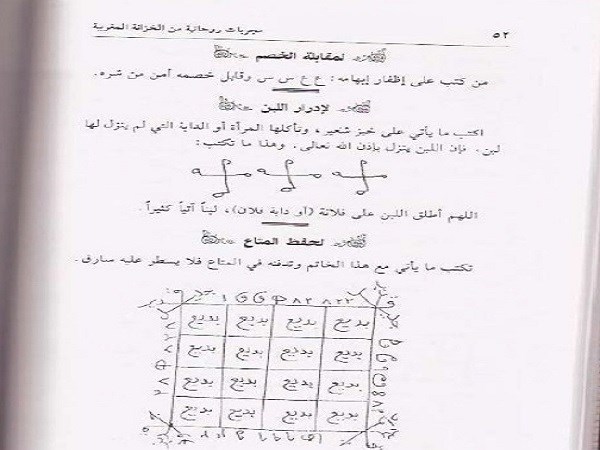 ٥٢ مجربات روحانية من الخزانة المغربية
لمقابلة الخصم
من كتب على إظفار إبهامه: ع ع س س وقابل خصمه أمن من شره.
لإدرار اللبن
اكتب ما يأتي على خبز شعير، وتأكلها المرأة أو الدابة التي لم ينزل لها
لبن. فإن اللبن ينزل بإذن الله تعالى. وهذا ما تكتب:
اللهم أطلق اللبن على فلانة (أو دابة فلان)، لبناً آتياً كثيراً.
لحفظ المتاع
تكتب ما يأتي مع هذا الخاتم وتدفنه في المتاع فلا يسطر عليه سارق.
بديع بديع بديع بديع
بديع بديع بديع بديع
بديع بديع بديع بديع
بديع بديع بديع بديع